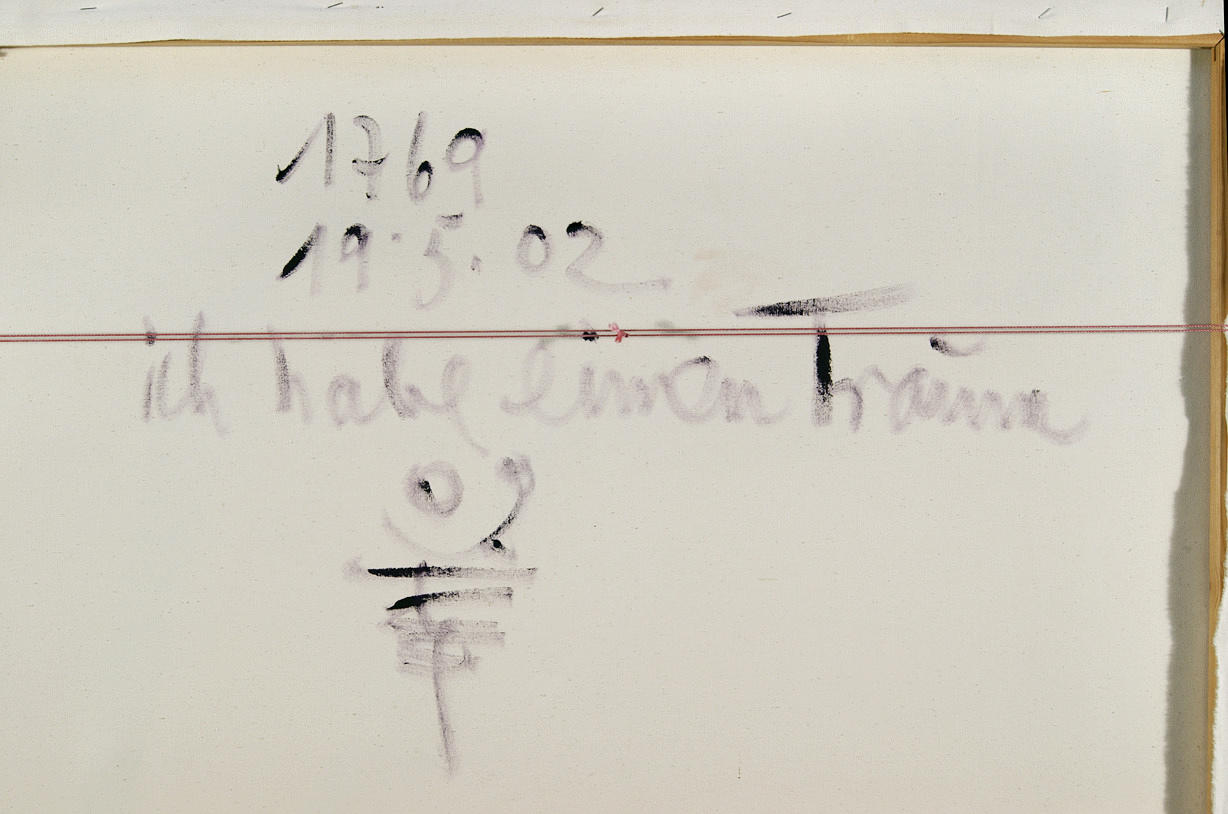 1769
19.5.02
ich habe einen Traum